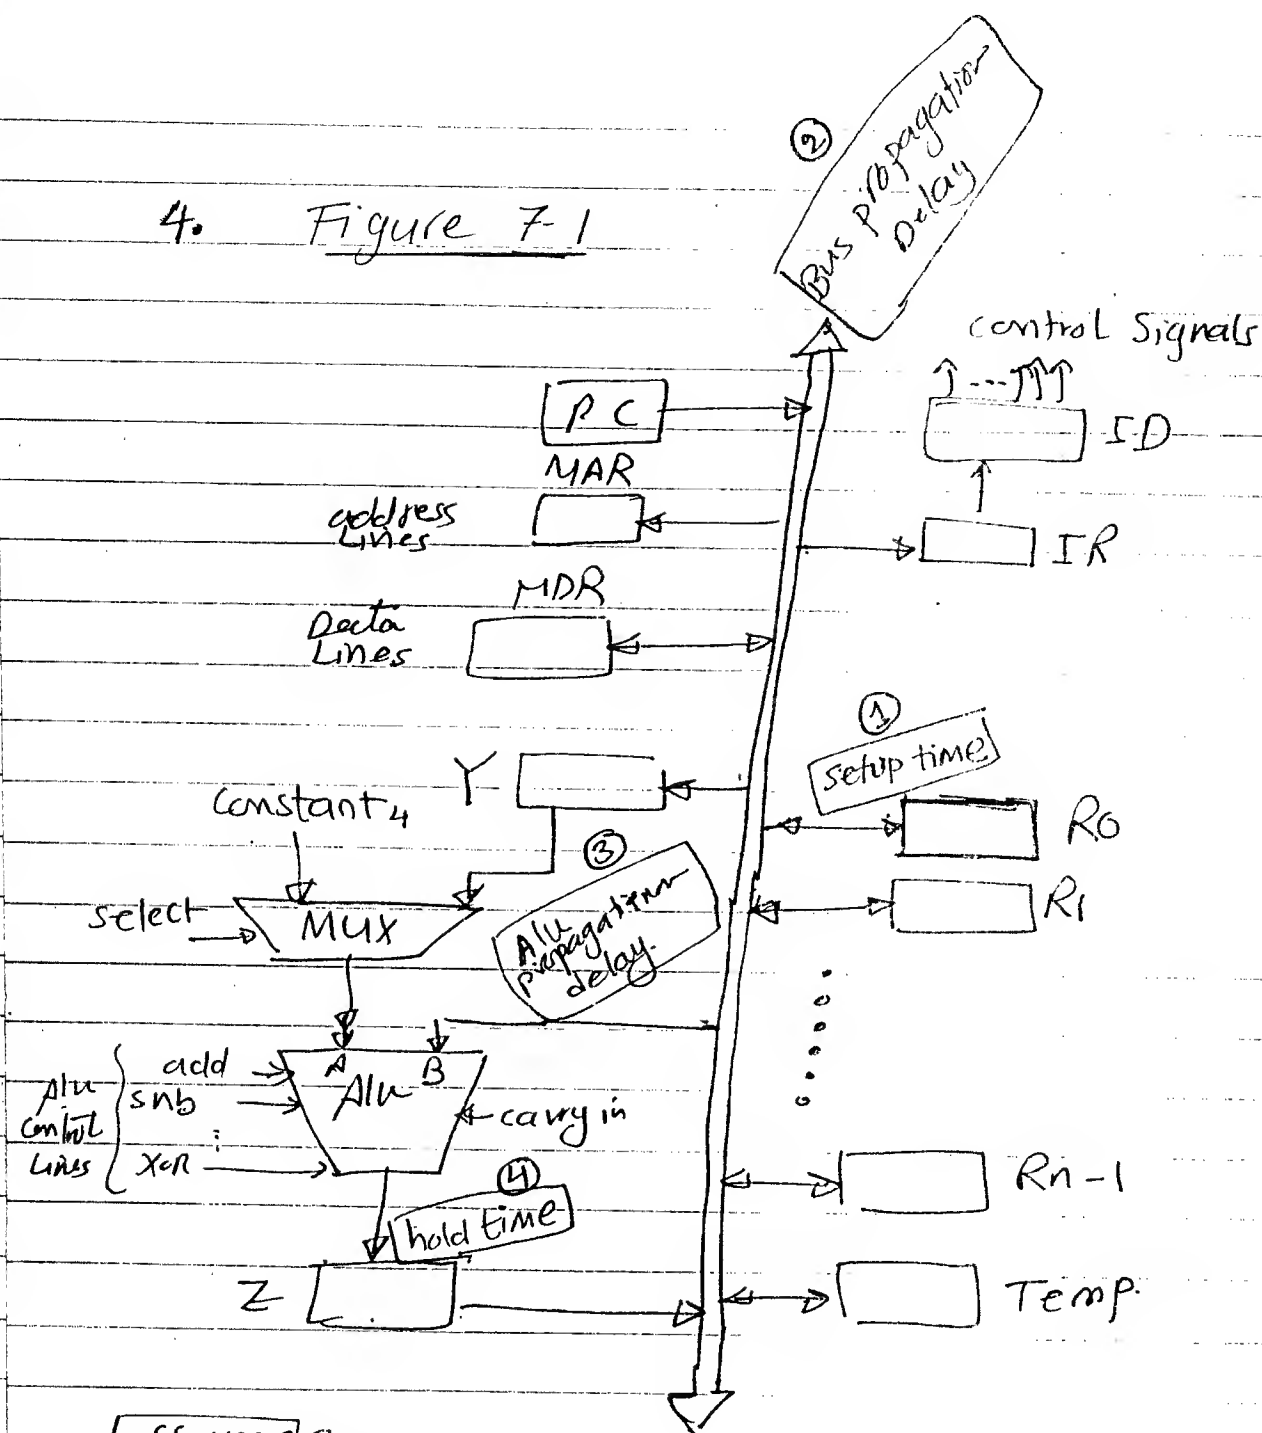 4. Figure 7-1
②
Bus propagation
Delay
control Signals
...
PC
ID
MAR
address
Lines
IR
MDR
Data
Lines
①
setup time
Y
Constant 4
R0
③
Alu
propagation
delay.
select
MUX
R1
A
B
Alu
Alu
control
Lines
add
sub
XOR
carry in
④
hold time
Rn-1
Z
Temp.